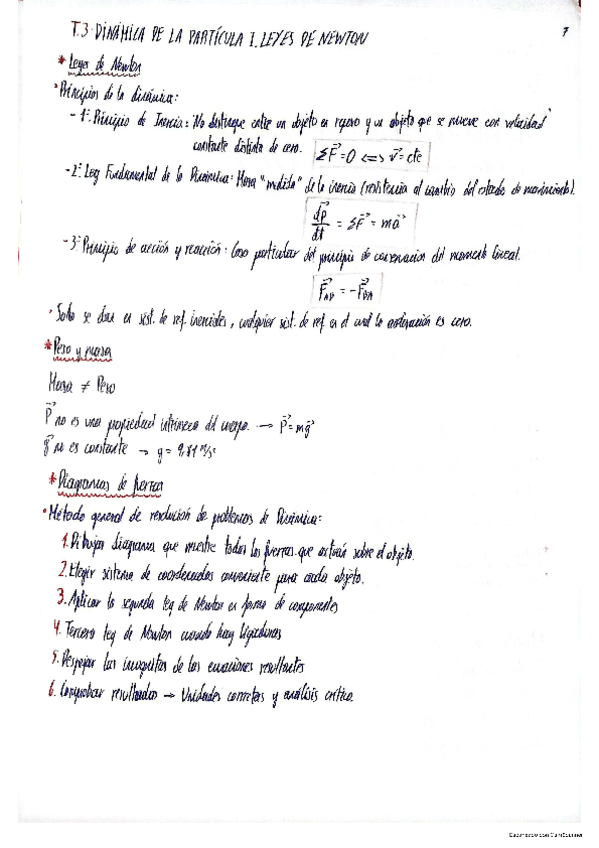 T.3. DINÁMICA DE LA PARTÍCULA I. LEYES DE NEWTON
7
* Leyes de Newton
· Principios de la dinámica:
- 1º: Principio de Inercia: "No distingue entre un objeto en reposo y un objeto que se mueve con velocidad"
constante distinta de cero. ΣF⃗ = 0 <=> v⃗ = cte
- 2º: Ley Fundamental de la Dinámica: Masa "medida" de la inercia (resistencia al cambio del estado de movimiento).
dp⃗/dt = ΣF⃗ = ma⃗
- 3º Principio de acción y reacción: Caso particular del principio de conservación del momento lineal.
F⃗AB = -F⃗BA
· Solo se dan en sist. de ref. inerciales, cualquier sist. de ref. en el cual la aceleración es cero.
* Peso y masa
Masa ≠ Peso
P⃗ no es una propiedad intrínseca del cuerpo. → P⃗ = mg⃗
g⃗ no es constante → g = 9,81 m/s²
* Diagramas de fuerzas
· Método general de resolución de problemas de Dinámica:
1. Dibujar diagrama que muestre todas las fuerzas que actúan sobre el objeto.
2. Elegir sistema de coordenadas conveniente para cada objeto.
3. Aplicar la segunda ley de Newton en forma de componentes
4. Tercera ley de Newton cuando hay ligaduras
5. Despejar las incógnitas de las ecuaciones resultantes
6. Comprobar resultados → Unidades correctas y análisis crítico.
Escaneado con CamScanner